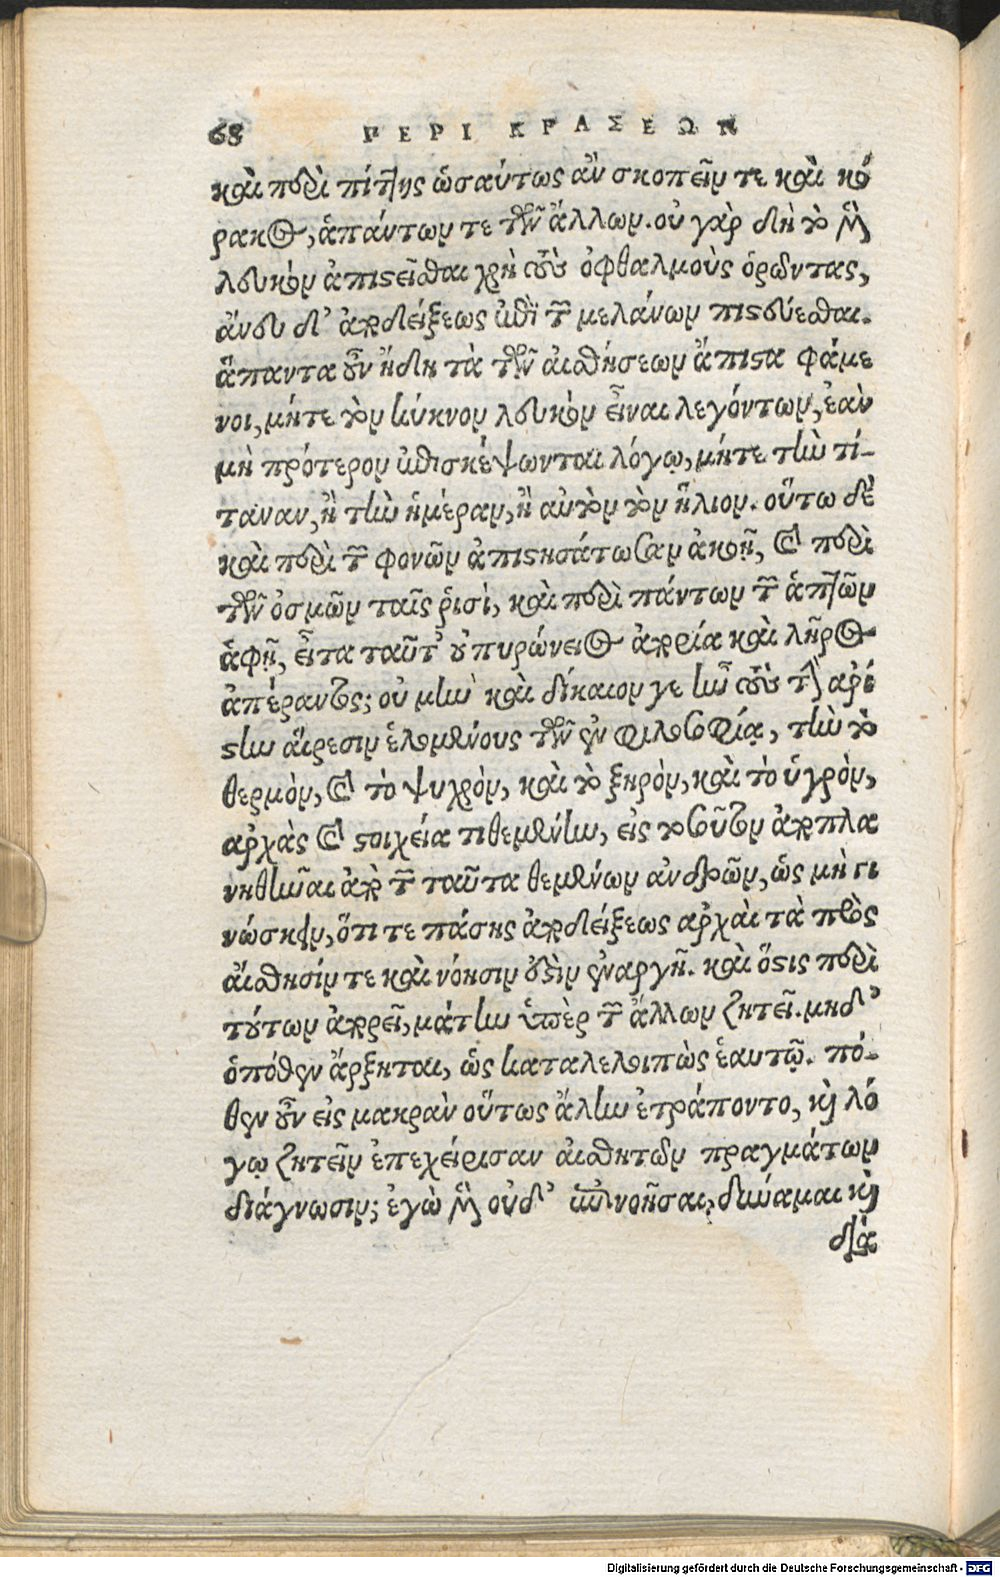 68 ΠΕΡΙ ΚΡΑΣΕΩΝ
καὶ περὶ πίττης ὡσαύτως ἂν σκοπεῖν τε καὶ κό
ρακος, ἁπάντων τε τῶν ἄλλων. οὐ γὰρ δὴ τὸ μὲν
λευκὸν ἀπιστεῖσθαι χρὴ τοὺς ὀφθαλμοὺς ὁρῶντας,
ἄνευ δι' ἀποδείξεως ἐπὶ τῶν μελάνων πιστεύεσθαι.
ἅπαντα οὖν ἤδη τὰ τῶν αἰσθήσεων ἄπιστα φάμε
νοι, μήτε τὸν κύκνον λευκὸν εἶναι λεγόντων, ἐὰν
μὴ πρότερον ἐπισκέψωνται λόγῳ, μήτε τὴν τί-
τανον, ἢ τὴν ἡμέραν, ἢ αὐτὸν τὸν ἥλιον. οὕτω δὲ
καὶ περὶ τῶν φονῶν ἀπιστησάτωσαν ἀκοῇ, καὶ περὶ
τῶν ὀσμῶν ταῖς ῥισὶ, καὶ περὶ πάντων τῶν ἁπτῶν
ἁφῇ, εἶτα ταῦτ' οὐ πυρώνειος ἀπορία καὶ λῆρος
ἀπέραντος; οὐ μὴν καὶ δίκαιον γε ἦν τοὺς τὴν ἀρί
στην αἵρεσιν ἑλομένους τῶν ἐν φιλοσοφίᾳ, τὴν τὸ
θερμὸν, καὶ τὸ ψυχρὸν, καὶ τὸ ξηρὸν, καὶ τὸ ὑγρὸν,
ἀρχὰς καὶ στοιχεία τιθεμένην, εἰς τοσοῦτον ἀποπλα
νηθῆναι ἀπὸ τῶν ταῦτα θεμένων ἀνδρῶν, ὡς μὴ γι
νώσκειν, ὅτι τε πάσης ἀποδείξεως ἀρχαὶ τὰ πρὸς
αἴσθησίν τε καὶ νόησιν ἐστὶν ἐναργῆ. καὶ ὅστις περὶ
τούτων ἀπορεῖ, μάτην ὑπὲρ τῶν ἄλλων ζητεῖ. μηδ'
ὁπόθεν ἄρξηται, ὡς καταλελοιπὼς ἑαυτῷ. πό-
θεν οὖν εἰς μακρὰν οὕτως ἄλην ἐτράποντο, καὶ λό
γῳ ζητεῖν ἐπεχείρισαν αἰσθητῶν πραγμάτων
διάγνωσιν; ἐγὼ μὲν οὐδ' ἐπινοῆσαι, δύναμαι καὶ
διὰ
Digitalisierung gefördert durch die Deutsche Forschungsgemeinschaft - DFG